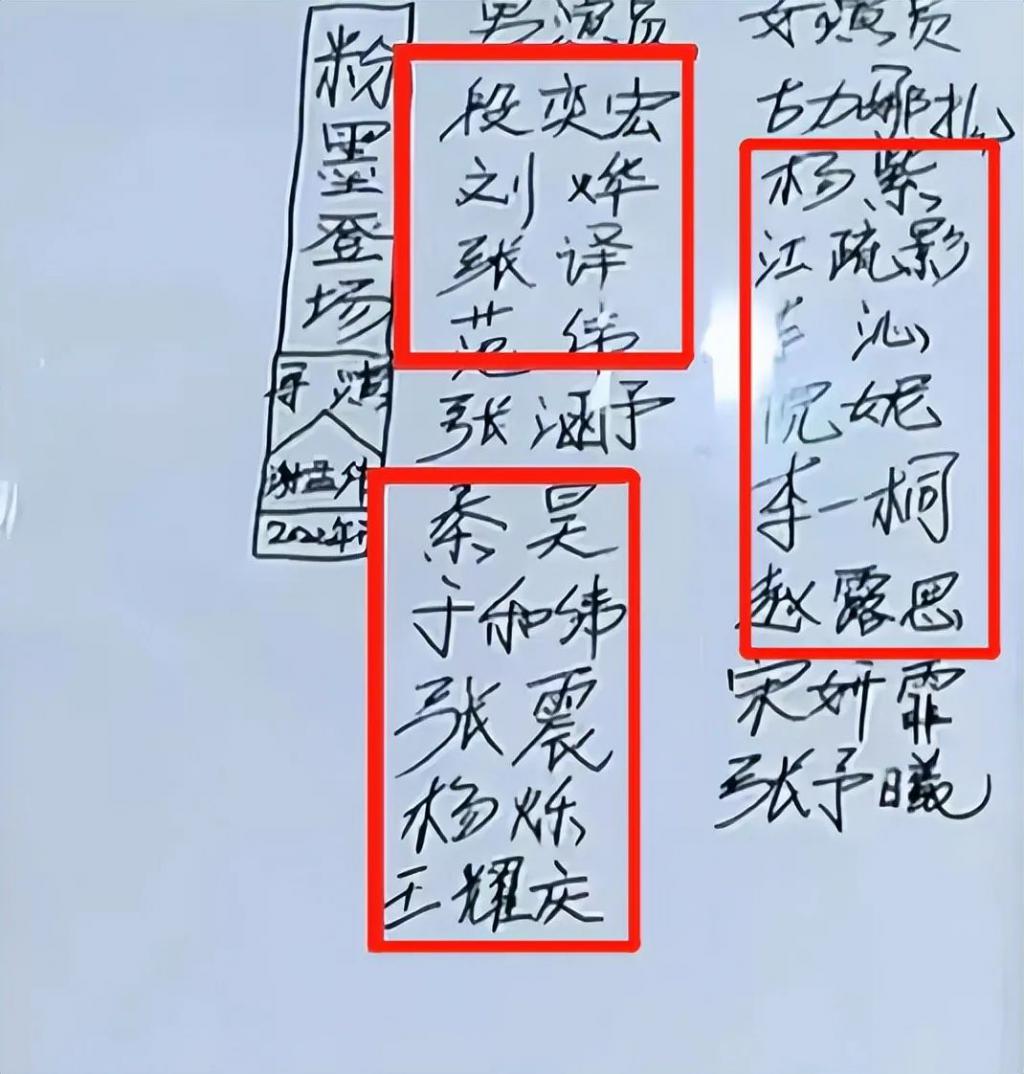 粉墨登场
导演
谢孟伟
2022年
男演员
段奕宏
刘烨
张译
范伟
张涵予
秦昊
于和伟
张震
杨烁
王耀庆
女演员
古力娜扎
杨紫
江疏影
李沁
倪妮
李一桐
赵露思
宋妍霏
张予曦